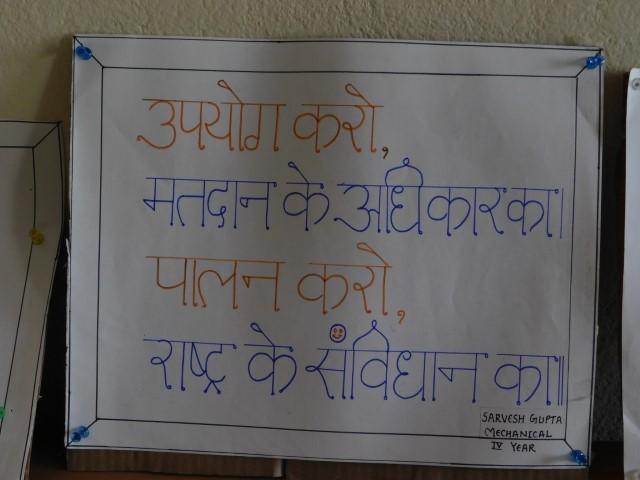 उपयोग करो,
मतदान के अधिकार का।
पालन करो,
राष्ट्र के संविधान का॥
SARVESH GUPTA
MECHANICAL
IV YEAR